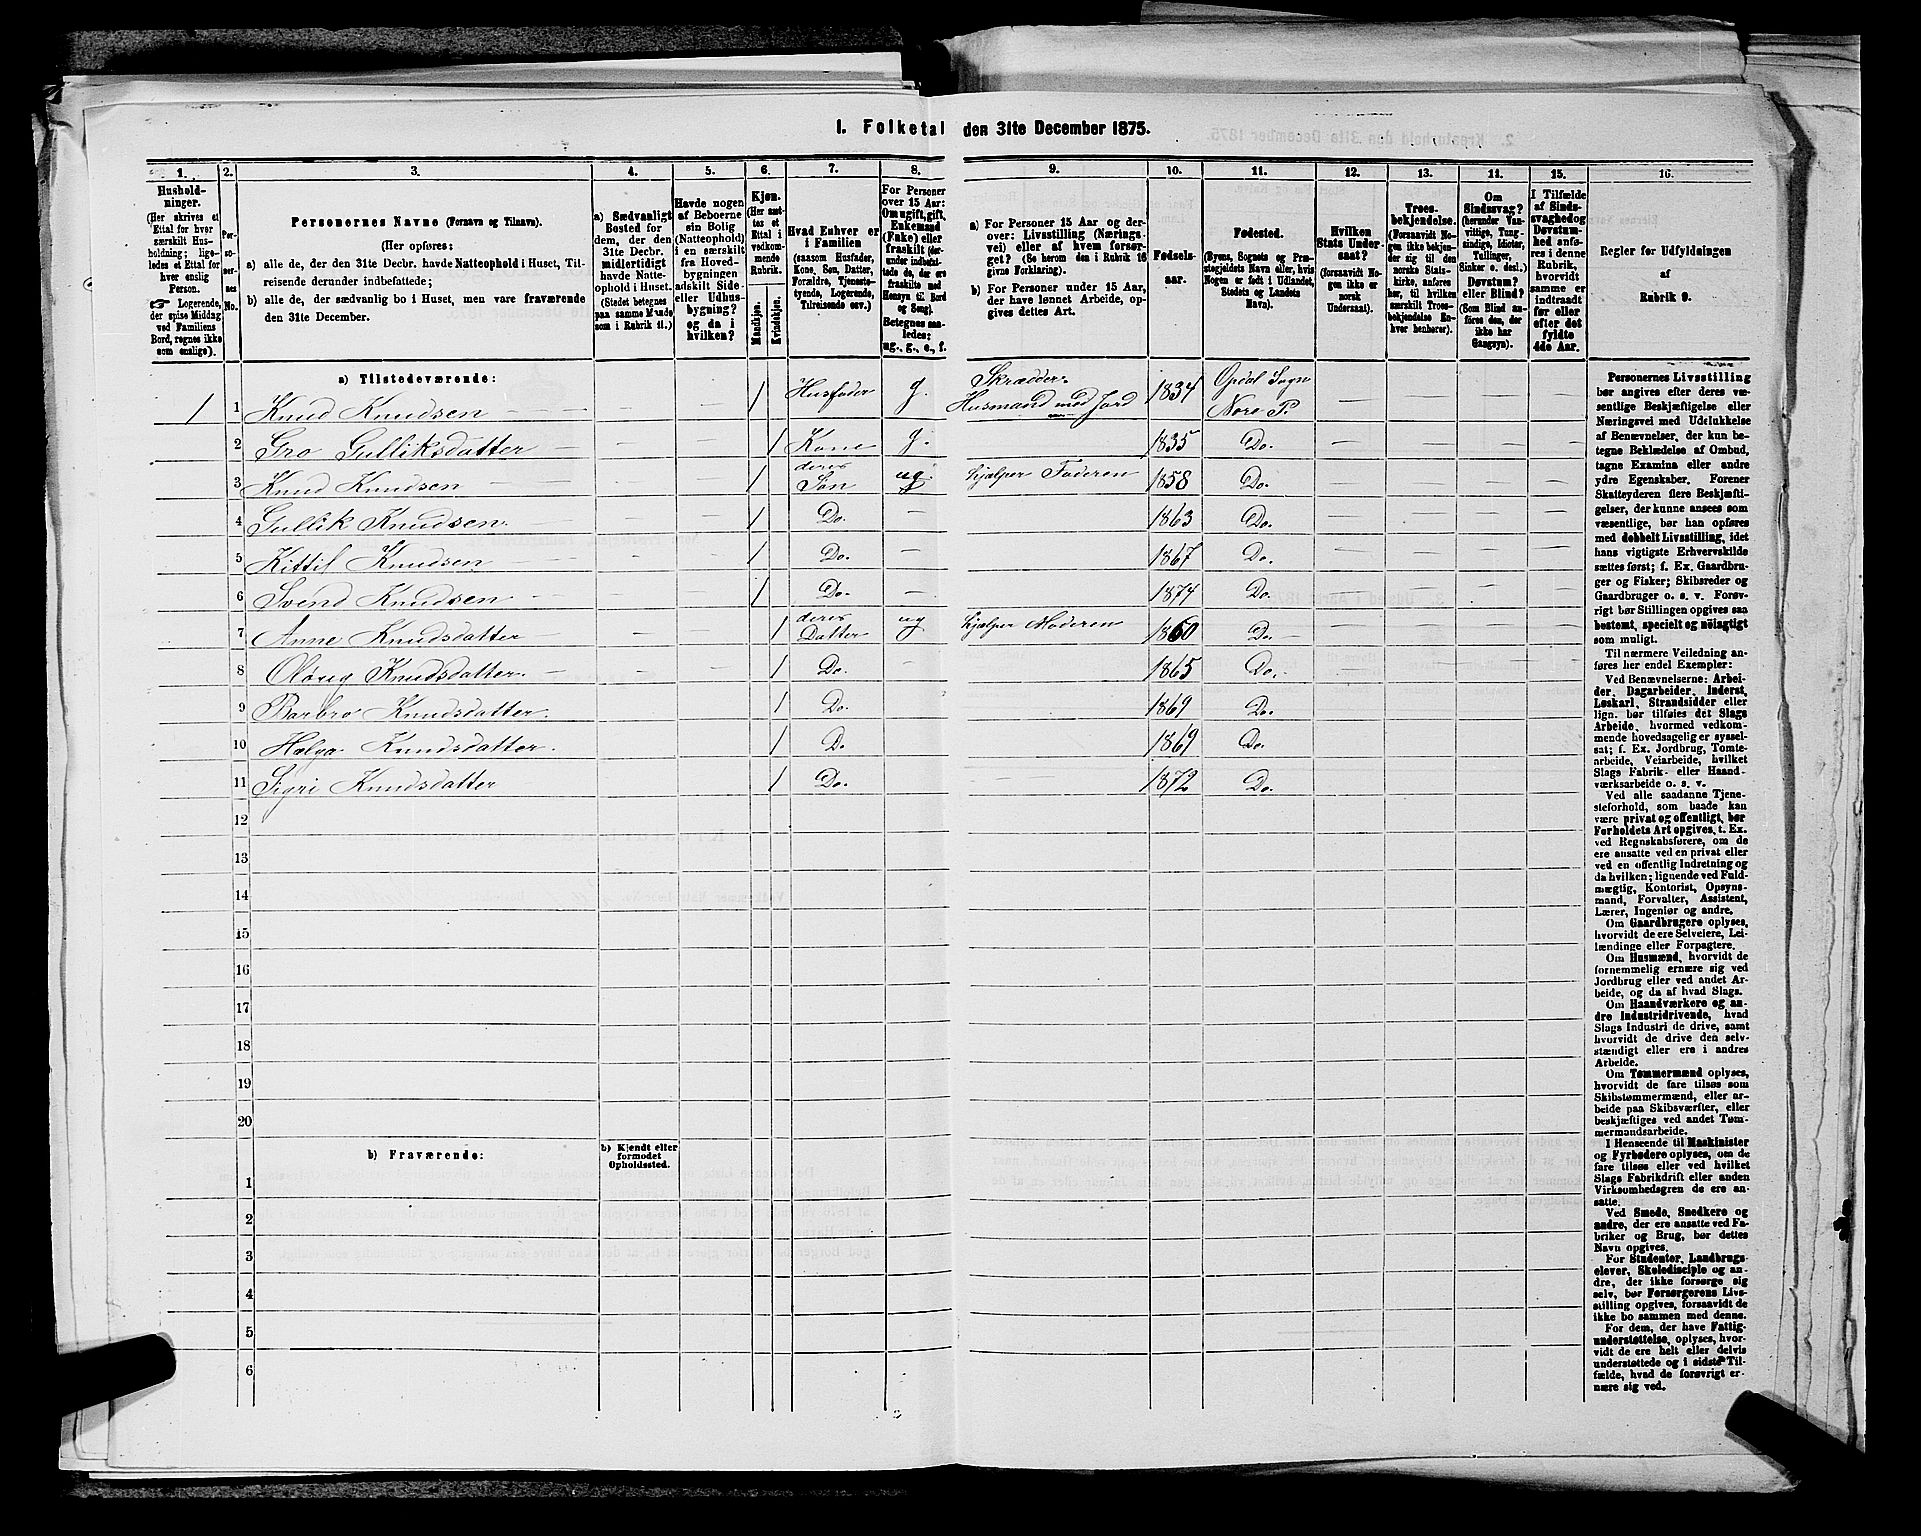 1. Folketal den 31te December 1875.
1. 2. 3. 4. 5. 6. 7. 8. 9. 10. 11. 12. 13. 14. 15. 16.
Hushold-
ninger.
(Her skrives et
Ettal for hver
særskilt Hus-
holdning; lige-
ledes et Ettal for
hver enslig
Person.
☞ Logerende,
der spise Middag
ved Familiens
Bord, regnes ikke
som enslige).
Per-
so-
ner-
nes
No.
Personernes Navne (Fornavn og Tilnavn).
(Her opføres:
a) alle de, der den 31te Decbr. havde Natteophold i Huset, Til-
reisende derunder indbefattede;
b) alle de, der sædvanlig bo i Huset, men vare fraværende
den 31te December.
a) Sædvanligt
Bosted for
dem, der den
31te Decbr.
midlertidigt
havde Natte-
ophold i Huset.
(Stedet betegnes
paa samme Maade
som i Rubrik 11.)
Havde nogen
af Beboerne
sin Bolig
(Natteophold)
i en særskilt
fra Hoved-
bygningen
adskilt Side-
eller Udhus-
bygning?
og da i
hvilken?
Kjøn.
(Her sæt-
tes et
Ettal i
vedkom-
mende
Rubrik.
Mandkjøn.
Kvindekjøn.
Hvad Enhver er
i Familien
(saasom Husfader,
Kone, Søn, Datter,
Forældre, Tjeneste-
tyende, Logerende,
Tilreisende osv.)
For Personer
over 15 Aar:
Om ugift, gift,
Enkemand
(Enke) eller
fraskilt (her-
under indbefat-
tede de, der ere
fraskilte med
Hensyn til Bord
og Seng).
Betegnes saa-
ledes:
ug., g., e., f.
a) For Personer 15 Aar og der-
over: Livsstilling (Nærings-
vei) eller af hvem forsør-
get? (Se herom den i Rubrik 16
givne Forklaring).
b) For Personer under 15 Aar,
der have lønnet Arbeide, op-
gives dettes Art.
Fødsels-
aar.
Fødested.
(Byens, Sognets og Præ-
stegjeldets Navn eller, hvis
Nogen er født i Udlandet,
Stedets og Landets
Navn).
Hvilken
Stats Under-
saat?
(forsaavidt No-
gen ikke er
norsk
Undersaat).
Troes-
bekjendelse.
(Forsaavidt No-
gen ikke bekjen-
der sig til den
norske Stats-
kirke, anføres
her, til hvilken
særskilt Troes-
bekjendelse En-
hver henhører).
Om
Sindssvag?
(herunder Van-
vittige, Tung-
sindige, Idioter,
Tullinger,
Sinker o. desl.)
Døvstum?
eller Blind?
(Som Blind an-
føres den, der
ikke har
Gangsyn).
I Tilfælde
af Sinds-
svaghed og
Døvstum-
hed anfø-
res i denne
Rubrik,
hvorvidt
samme er
indtraadt
før eller
efter det
fyldte
4de Aar.
Regler for Udfyldningen
af
Rubrik 9.
a) Tilstedeværende:
1 1 Knud Knudsen 1 Husfader g. Skrædder. Husmand med Jord 1834 Opdal Sogn Nore P.
2 Gro Gulliksdatter 1 Kone g. 1835 Do.
3 Knud Knudsen 1 deres Søn ug. hjælper Faderen 1858 Do.
4 Gullik Knudsen. 1 Do. 1863 Do.
5 Kittil Knudsen 1 Do. 1867 Do.
6 Svend Knudsen 1 Do. 1874 Do.
7 Anne Knudsdatter 1 deres Datter ug hjælper Moderen 1860 Do
8 Olaug Knudsdatter. 1 Do. 1865 Do.
9 Barbro Knudsdatter. 1 Do. 1869 Do.
10 Helga Knudsdatter. 1 Do 1869 Do.
11 Sigri Knudsdatter 1 Do. 1872 Do.
12
13
14
15
16
17
18
19
20
b) Fraværende:
b) Kjendt eller
formodet
Opholdssted.
1
2
3
4
5
6
Personernes Livsstilling
bør angives efter deres væ-
sentlige Beskjæftigelse eller
Næringsvei med Udelukkelse
af Benævnelser, der kun be-
tegne Beklædelse af Ombud,
tagne Examina eller andre
ydre Egenskaber. Forener
Skatteyderen flere Beskjæfti-
gelser, der kunne ansees som
væsentlige, bør han opføres
med dobbelt Livsstilling, idet
hans vigtigste Erhvervskilde
sættes først; f. Ex. Gaardbru-
ger og Fisker; Skibsreder og
Gaardbruger o. s. v. Forøv-
rigt bør Stillingen opgives saa
bestemt, specielt og nöiagtigt
som muligt.
Til nærmere Veiledning an-
føres her endel Exempler:
Ved Benævnelserne: Arbei-
der, Dagarbeider, Inderst,
Løskarl, Strandsidder eller
lign. bør tilføies det Slags
Arbeide, hvormed vedkom-
mende hovedsagelig er syssel-
sat; f. Ex. Jordbrug, Tomte-
arbeide, Veiarbeide, hvilket
Slags Fabrik- eller Haand-
værksarbeide o. s. v.
Ved alle saadanne Tjene-
steforhold, som baade kan
være privat og offentligt, bør
Forholdets Art opgives, t. Ex.
ved Regnskabsførere, om de
ere ansatte ved en privat eller
ved en offentlig Indretning og
da hvilken; lignende ved Fuld-
mægtig, Kontorist, Opsyns-
mand, Forvalter, Assistent,
Lærer, Ingeniør og andre.
Om Gaardbrugere oplyses,
hvorvidt de ere Selveiere, Lei-
lændinge eller Forpagtere.
Om Husmænd, hvorvidt de
fornemmelig ernære sig ved
Jordbrug eller ved andet Ar-
beide, og da af hvad Slags.
Om Haandværkere og an-
dre Industridrivende, hvad
Slags Industri de drive, samt
hvorvidt de drive den selv-
stændigt eller ere i andres
Arbeide.
Om Tømmermænd oplyses,
hvorvidt de fare tilsøs som
Skibstømmermænd, eller ar-
beide paa Skibsværfter, eller
beskjæftiges ved andet Tøm-
mermandsarbeide.
I Henseende til Maskinister
og Fyrbødere oplyses, om de
fare tilsøs eller ved hvilket
Slags Fabrikdrift eller anden
Virksomhedsgren de ere an-
satte.
Ved Smede, Snedkere og
andre, der ere ansatte ved Fa-
briker og Brug, bør dettes
Navn opgives.
For Studenter, Landbrugs-
elever, Skoledisciple og an-
dre, der ikke forsørge sig
selv, bør Forsørgerens Livs-
stilling opgives, forsaavidt de
ikke bo sammen med denne.
For dem, der have Fattig-
understøttelse, oplyses, hvor-
vidt de ere helt eller delvis
understøttede og i sidste Til-
fælde, hvad de forøvrigt er-
nære sig ved.